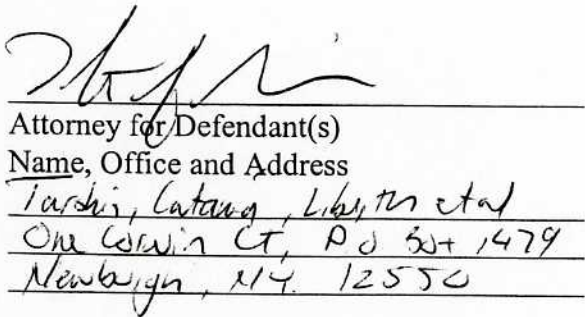 Attorney for Defendant(s)
Name, Office and Address
Tarshis, Catania, Liberth et al
One Corwin Ct, PO Box 1479
Newburgh, NY. 12550